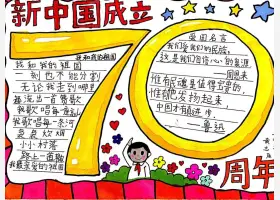 新中国成立
70
周年
我和我的祖国
我和我的祖国
一刻也不能分割
无论我走到哪里
都流出一首赞歌
我歌唱每一座山
我歌唱每一条河
袅袅炊烟
小小村落
路上一道辙
我最亲爱的祖国
爱国名言
我们爱我们的民族,
这是我们自信心的泉源
——周恩来
惟有民魂是值得宝贵的,
惟有他发扬起来,
中国才有真进步。
——鲁迅